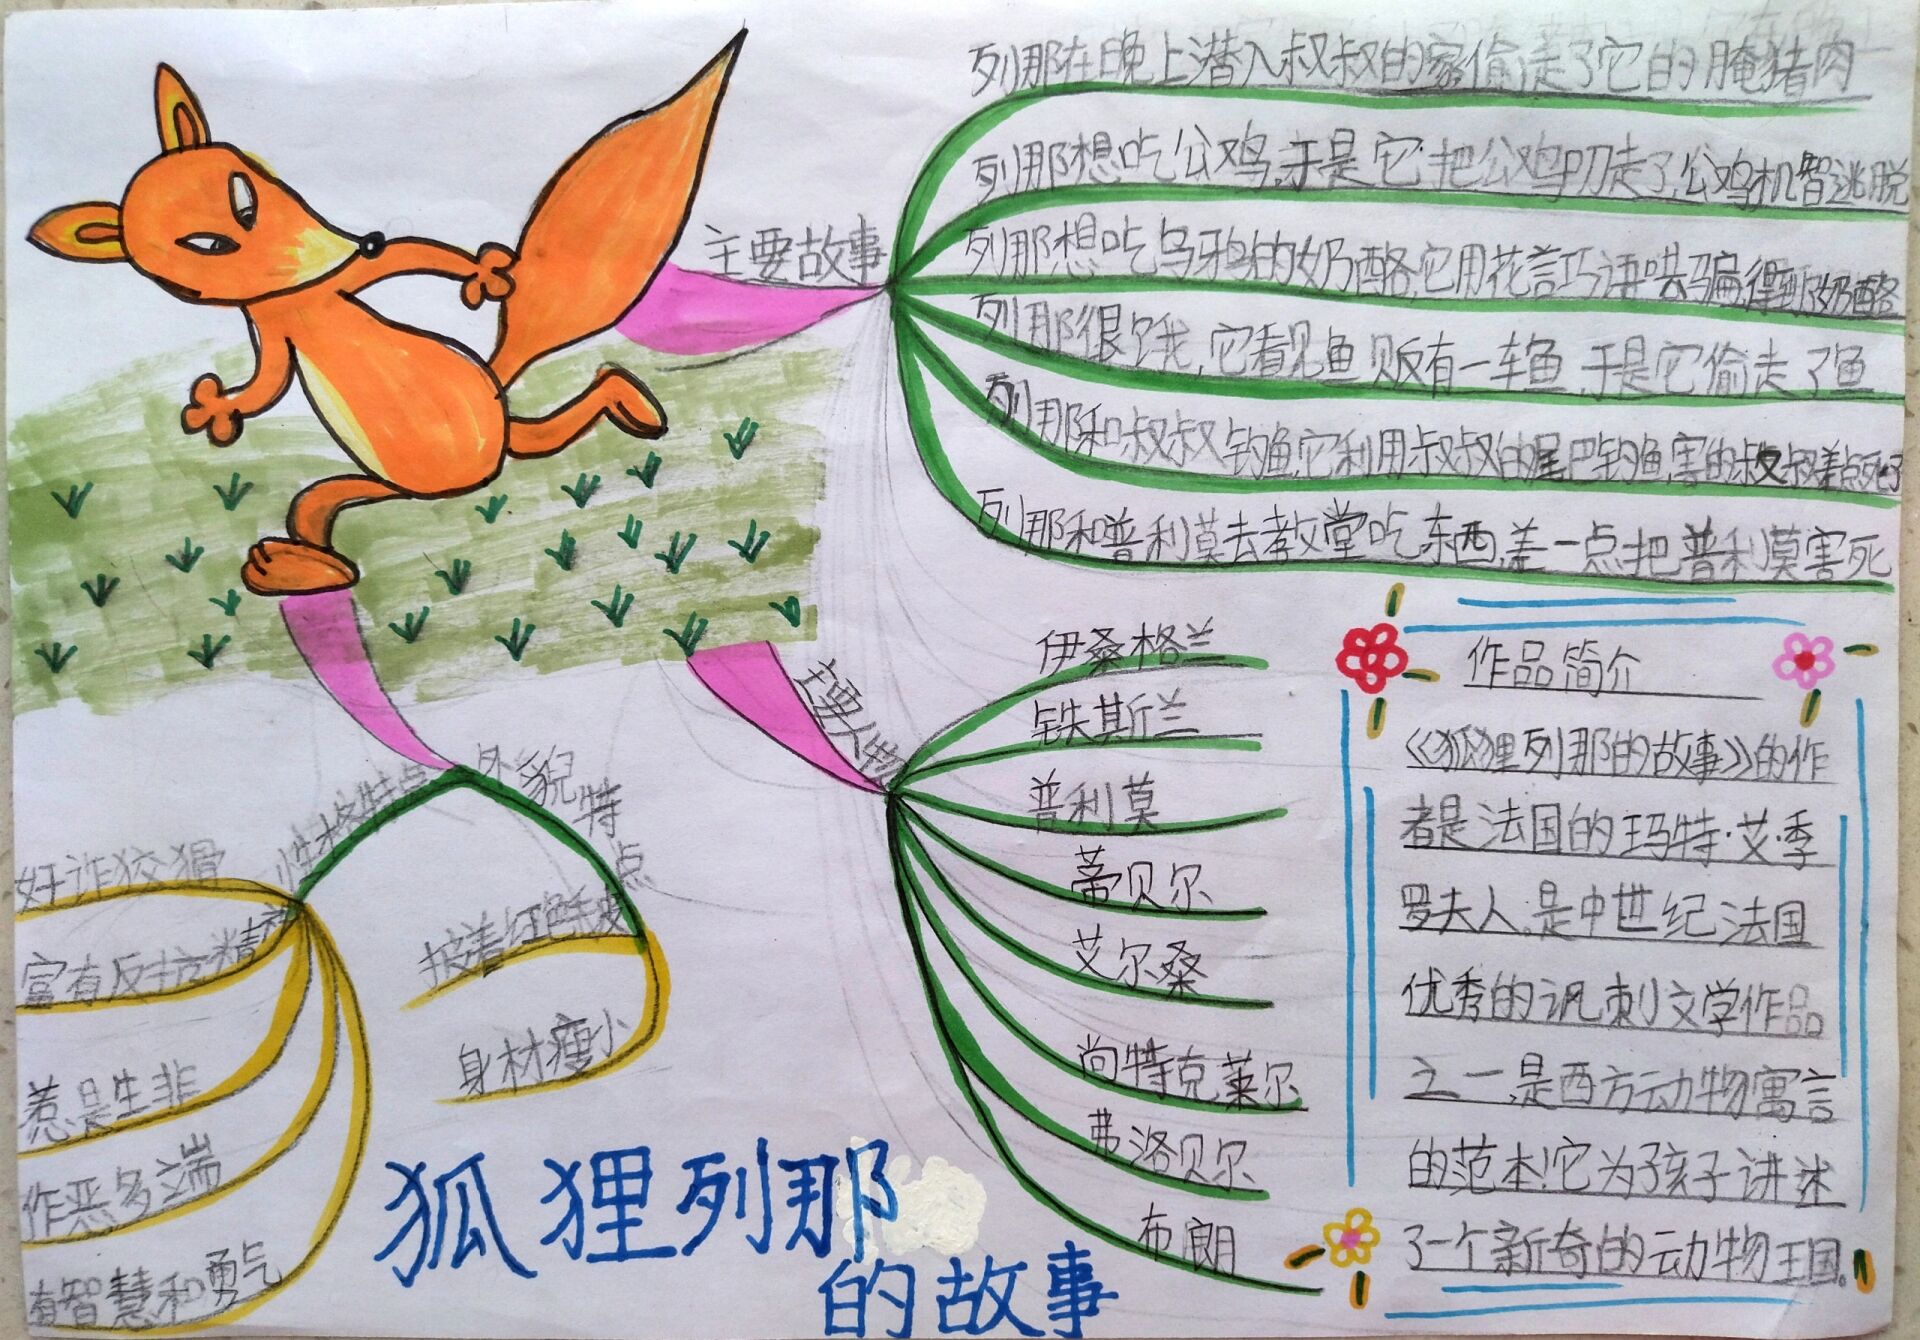 列那在晚上潜入叔叔的家偷走了它的腌猪肉
列那想吃公鸡,于是它把公鸡叼走了,公鸡机智逃脱
主要故事
列那想吃乌鸦的奶酪,它用花言巧语哄骗,得到奶酪
列那很饿,它看见鱼贩有一车鱼,于是它偷走了鱼
列那和叔叔钓鱼,它利用叔叔的尾巴钓鱼,害的叔叔差点死了
列那和普利莫去教堂吃东西,差一点把普利莫害死
主要人物
伊桑格兰
铁斯兰
普利莫
蒂贝尔
艾尔桑
尚特克莱尔
弗洛贝尔
布朗
作品简介
《狐狸列那的故事》的作
者是法国的玛特·艾·季
罗夫人,是中世纪法国
优秀的讽刺文学作品
之一,是西方动物寓言
的范本!它为孩子讲述
了一个新奇的动物王国。
性格特点
外貌特点
奸诈狡猾
富有反抗精神
惹是生非
作恶多端
有智慧和勇气
披着红色毛皮
身材瘦小
狐狸列那
的故事